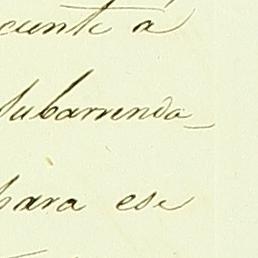 cunte á
subarrenda_
para ese